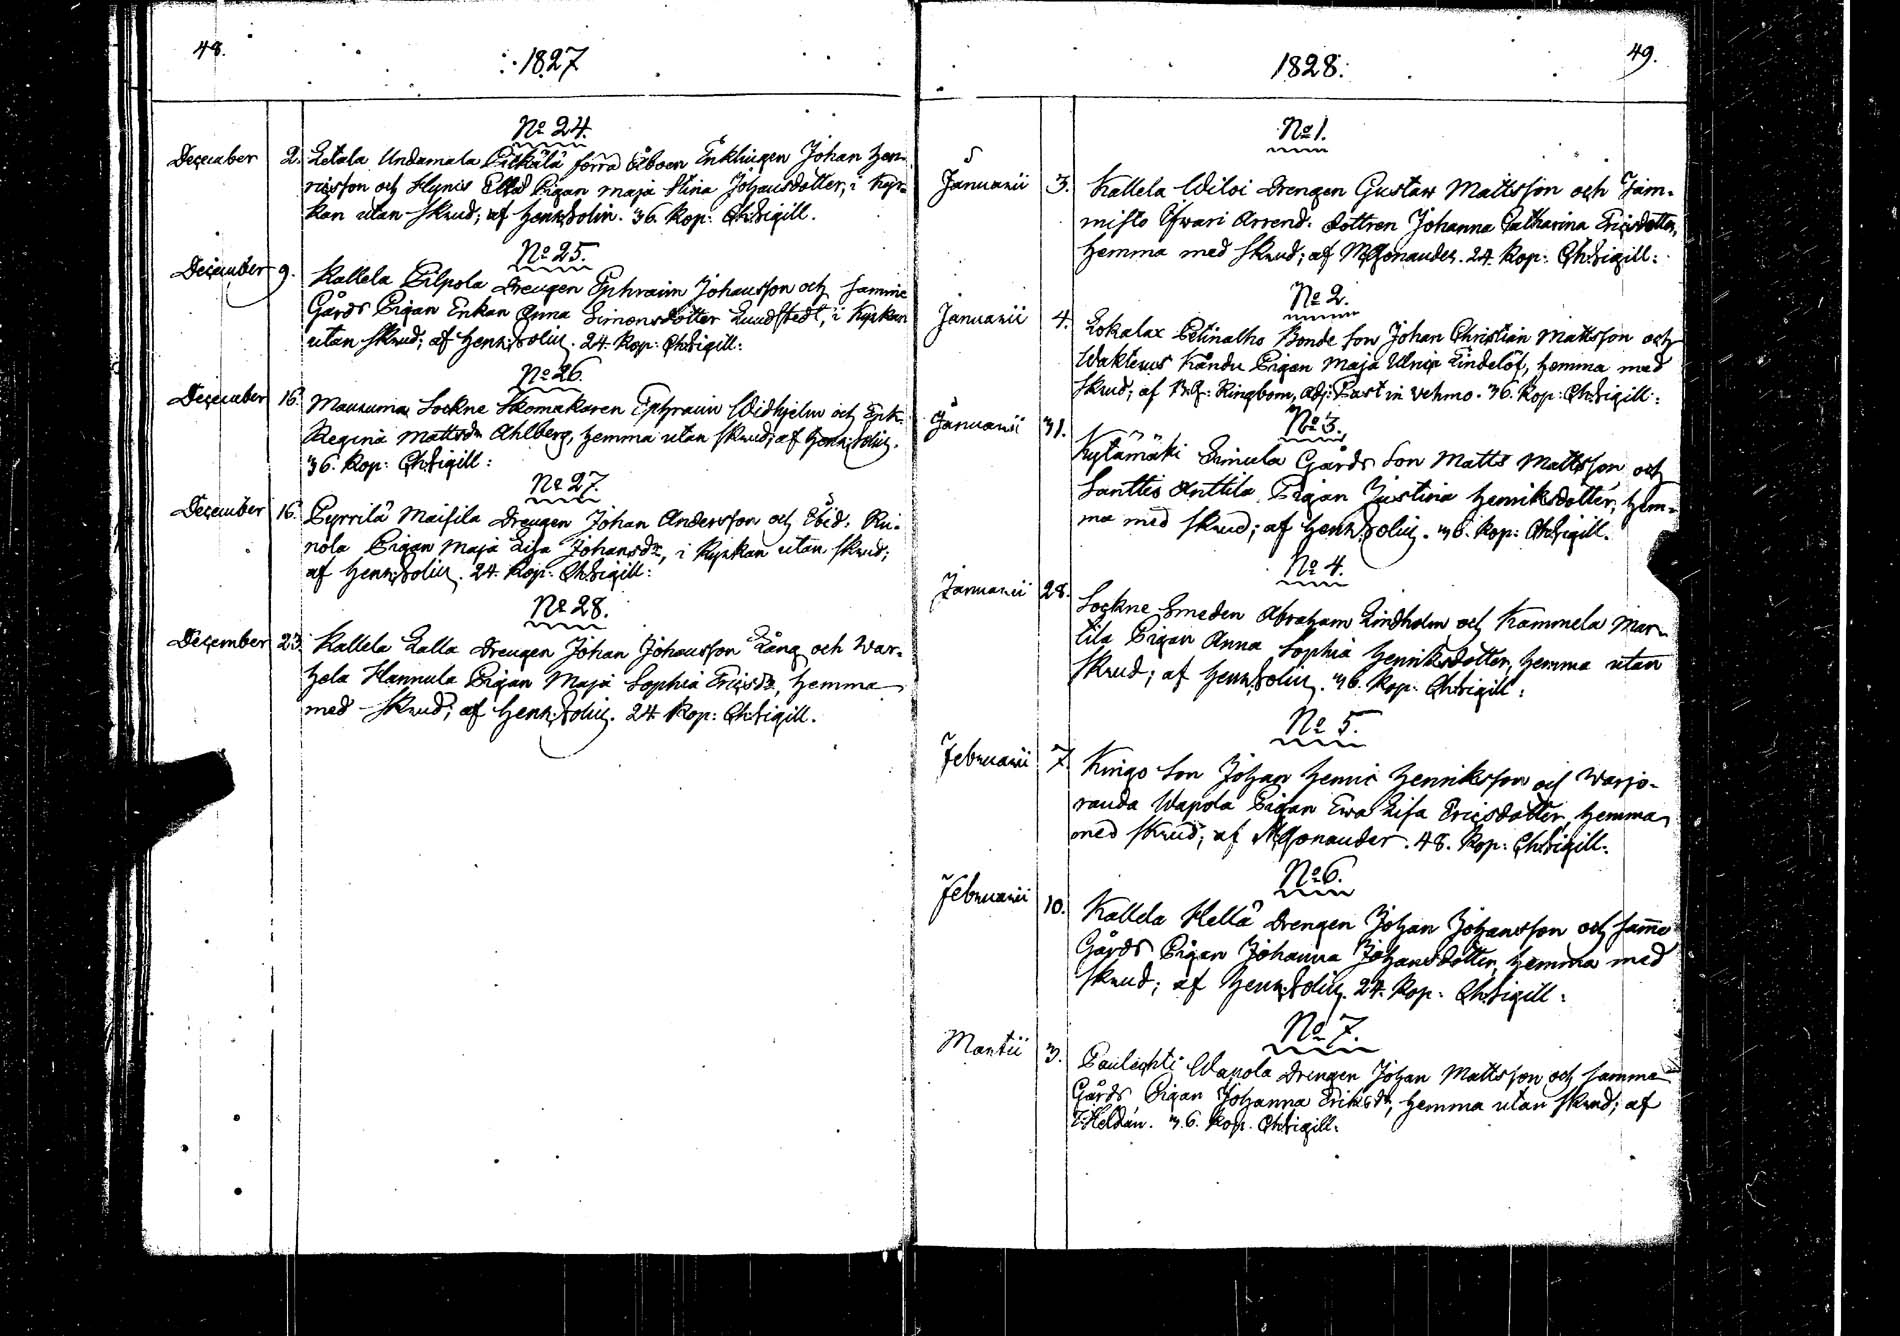 48.
1827
No 24.
December 2. Letala Undamala Pilkälä förra Åboen Enklingen Johan Hen-
ricsson och Hynis Ellä Pigan Maja Stina Johansdotter, i Kyr-
kan utan skrud; af Henr. Tolin. 36. kop: Ch:Sigill.
No 25.
December 9. Kallela Pilpola Drengen Ephraim Johansson och samme
Gårds Pigan Enkan Anna Simonsdotter Lundstedt, i Kyrkan
utan skrud; af Henr. Tolin. 24. kop: Ch:Sigill:
No 26.
December 16. Maunuma Sockne Skomakaren Ephraim Widhjelm och Enk.
Regina Mattsdr Ahlberg, hemma utan skrud; af Henr. Tolin.
36. kop: Ch:Sigill:
No 27.
December 16. Pyrrilä Maisila Drengen Johan Andersson och Ibid. Ru-
nola Pigan Maja Lisa Johansdr, i Kyrkan utan skrud;
af Henr. Tolin. 24. kop: Ch:Sigill:
No 28.
December 23. Kallela Lalla Drengen Johan Johansson Lång och War-
hela Hannula Pigan Maja Sophia Ericsdr, hemma
med skrud; af Henr. Tolin. 24. kop: Ch:Sigill.
1828.
49.
No 1.
Januarii 3. Kallela Wiloi Drengen Gustav Mattsson och Jäm-
misto Yfwari Arrend. dottren Johanna Catharina Ericsdotter,
hemma med skrud; af Monander. 24. kop: Ch:Sigill:
No 2.
Januarii 4. Lokalax Petinalho Bonde Son Johan Christian Mattsson och
Waktens Kändu Pigan Maja Ulrica Lindelöf, hemma med
skrud; af Ringbom, Adj: Past in Vehmo. 36. kop: Ch:Sigill:
No 3.
Januarii 31. Kytämäki Simula Gårds Son Matts Mattsson och
Santtio Anttila Pigan Justina Henriksdotter, hem-
ma med skrud; af Henr. Tolin. 36. kop: Ch:Sigill.
No 4.
Januarii 28. Sockne Smeden Abraham Lindholm och Kammela Mar-
tila Pigan Anna Sophia Henriksdotter, hemma utan
skrud; af Henr. Tolin. 36. kop: Ch:Sigill:
No 5.
Februarii 7. Kingo Son Johan Henric Henriksson och Warjo-
rauda Wapola Pigan Ewa Lisa Ericsdotter, hemma
med skrud; af Monander. 48. kop: Ch:Sigill:
No 6.
Februarii 10. Kallela Hellä Drengen Johan Johansson och samme
Gårds Pigan Johanna Johansdotter, hemma med
skrud; af Henr. Tolin. 24. kop: Ch:Sigill:
No 7.
Martii 3. Paulachti Wapola Drengen Johan Mattsson och samma
Gårds Pigan Johanna Eriksdr, hemma utan skrud; af
T:Heldán. 36. kop. Ch:Sigill: